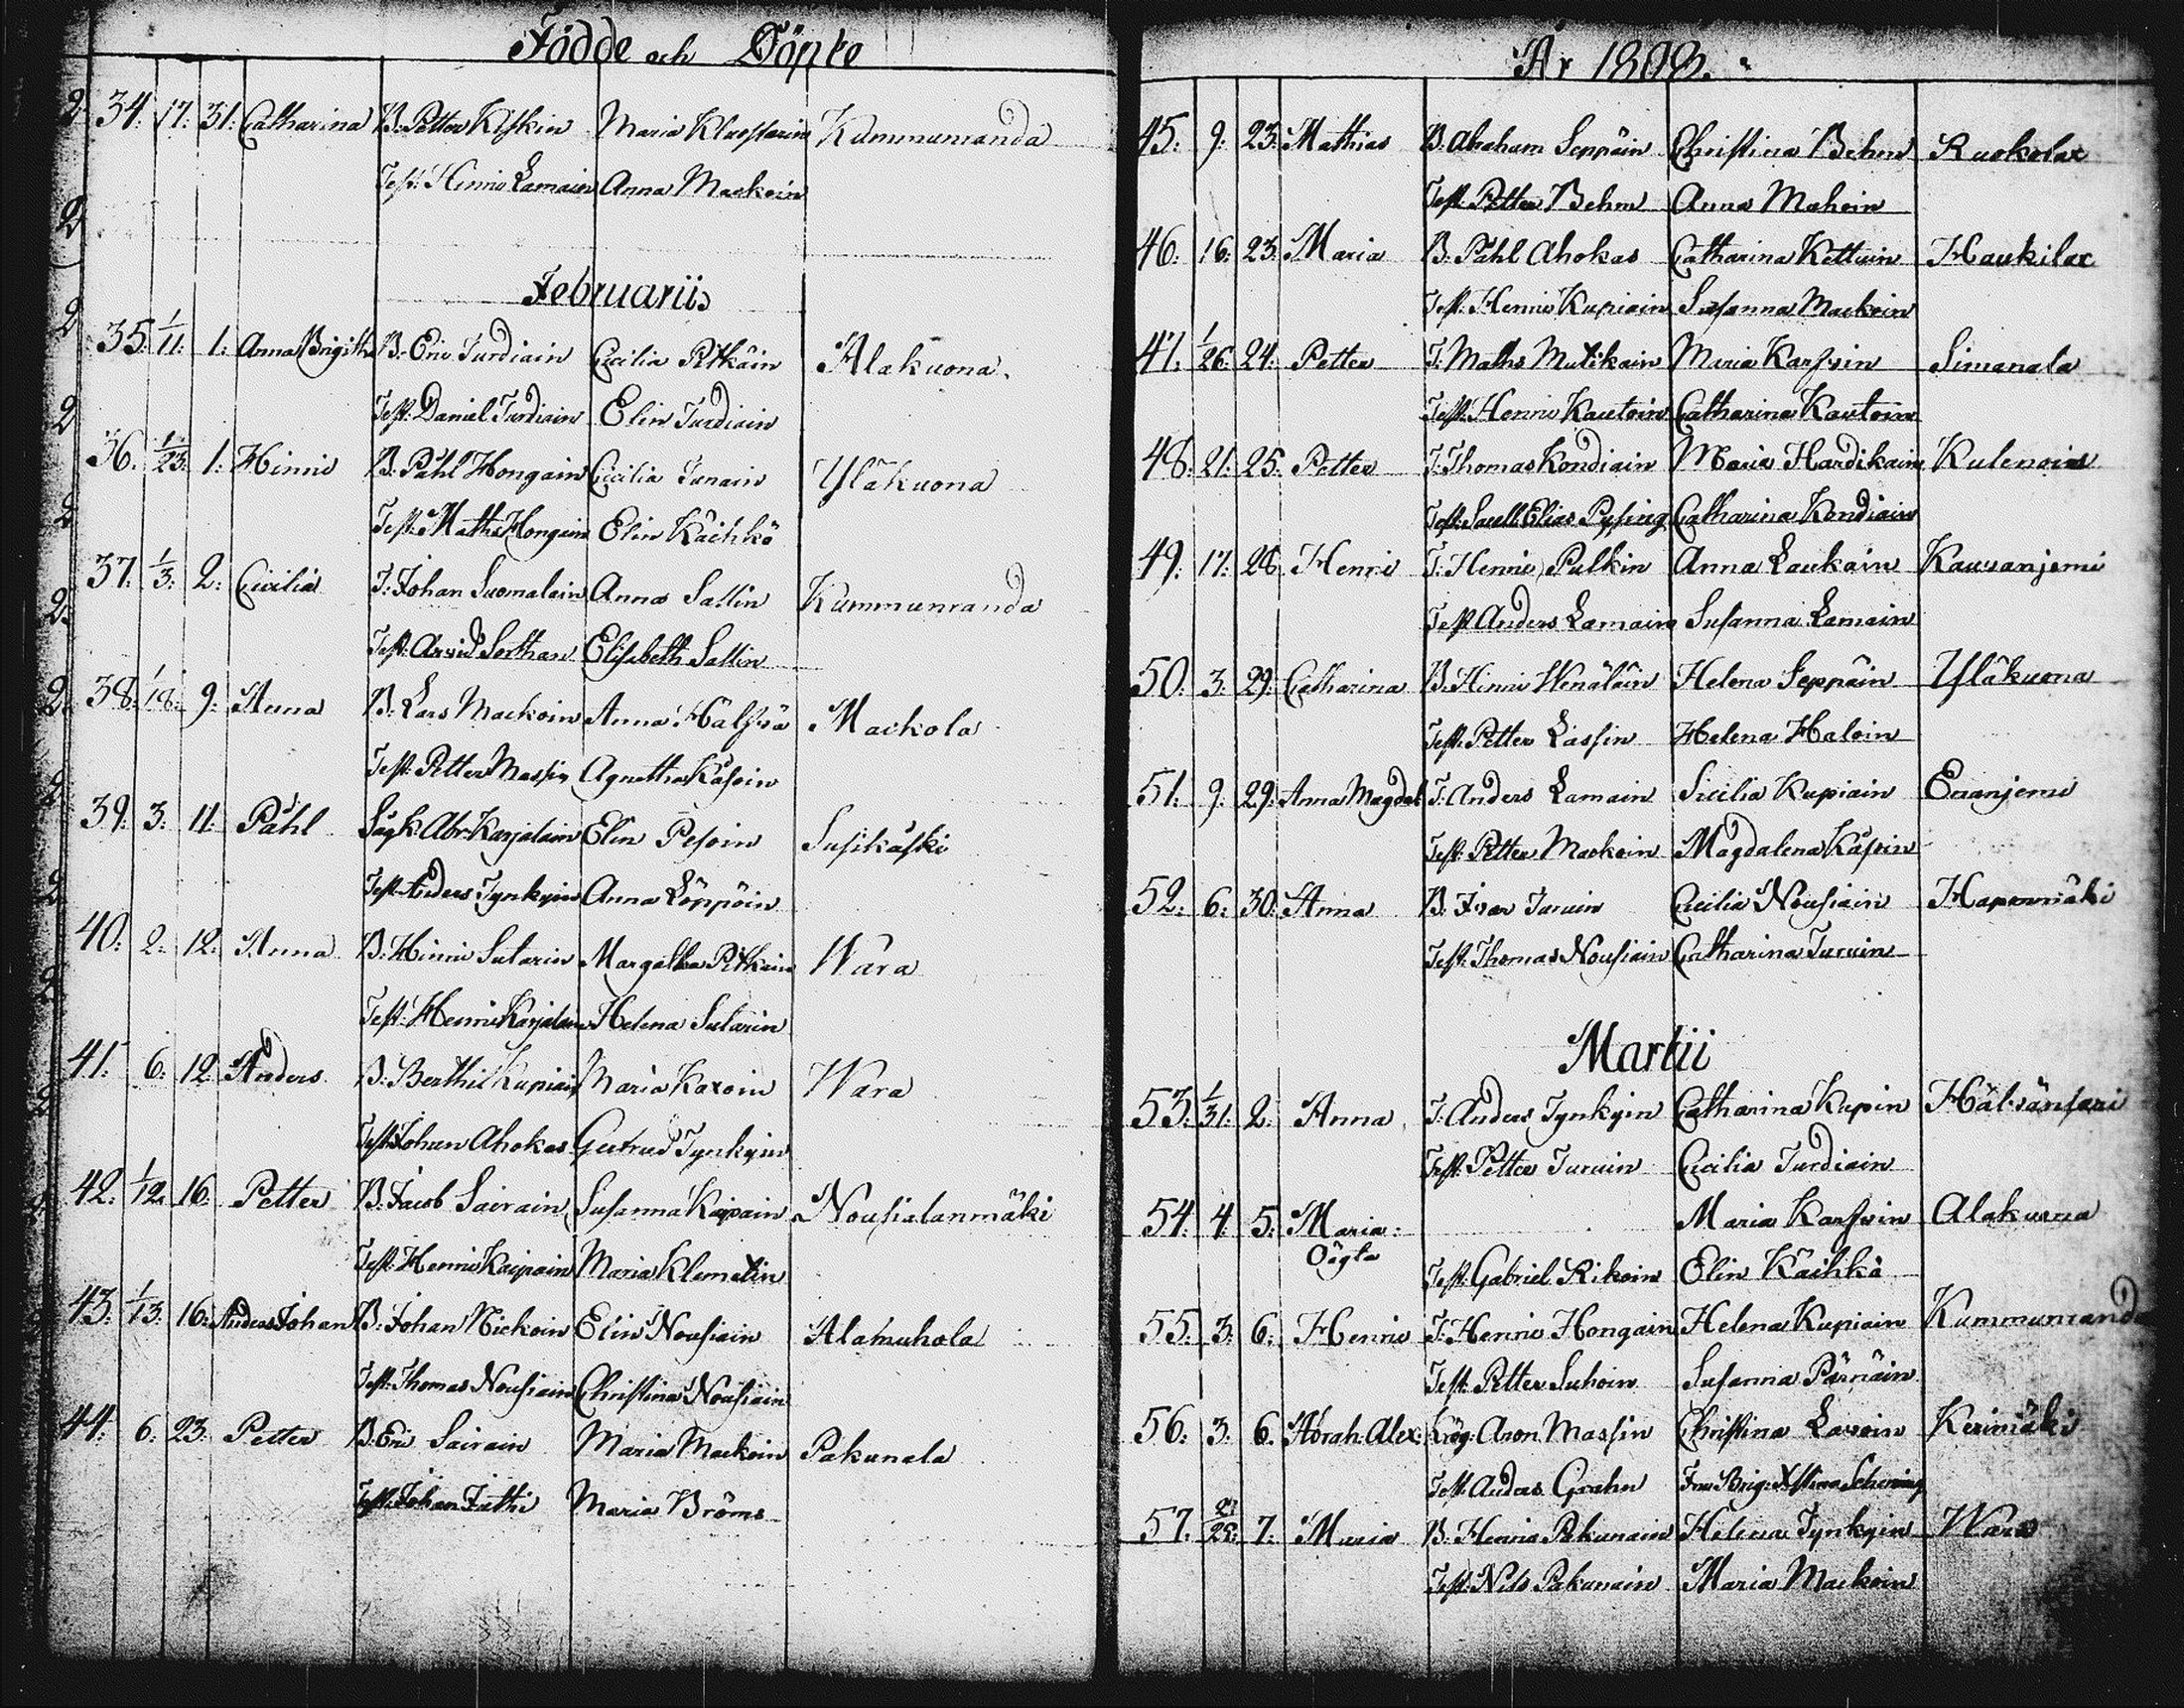 Födde och Döpte
34. 17. 31. Catharina B. Petter Kiskin Maria Kluossarin Kummunranda
Test: Henric Lamain Anna Mackoin
Februarii
35. 1/11. 1. Anna Brigitha B. Eric Turdiain Cicilia Pitkäin Alakuona.
Test: Daniel Turdiain Elin Turdiain
36. 1/23. 1. Hinric B. Påhl Hongain Cicilia Tunain Yläkuona
Test: Math: Hongain Elin Käihkö
37. 1/3. 2. Cicilia T. Johan Suomalain Anna Sallin Kummunranda
Test: Arvid Sorthan Elisabeth Sallin
38. 1/18. 9. Anna B. Lars Mackoin Anna Hälfvä Mackola
Test: Petter Massin Agnetha Kåsoin
39. 3. 11. Påhl Abr. Karjalain Elin Pesoin Susikåski
Test: Anders Tynkyin Anna Löppöin
40. 2. 12. Anna B. Hinric Sutarin Margetha Pitkäin Wara
Test: Henric Karjalain Helena Sutarin
41. 6. 12. Anders B. Berthil Kupiain Maria Kaxoin Wara
Test: Johan Ahokas Gertrud Tynkyin
42. 1/12. 16. Petter B. Jacob Sairain Susanna Kaipain Nousialanmäki
Test: Henric Kaipain Maria Klemetin
43. 1/13. 16. Anders Johan B. Johan Mickoin Elin Nousiain Alamuhola
Test: Thomas Nousiain Christina Nousiain
44. 6. 23. Petter B. Eric Sairain Maria Mackoin Pakunala
Test: Johan Fäthi Maria Bröms
År 1808.
45. 9. 23. Mathias B. Abraham Seppäin Christina Behm Ruokolax
Test: Petter Behm Anna Mahoin
46. 16. 23. Maria B. Påhl Ahokas Catharina Kettuin Haukilax
Test: Henric Kupiain Susanna Mackoin
47. 1/26. 24. Petter T. Maths Mutikain Maria Karfvin Simanala
Test: Henric Kautoin Catharina Kautoin
48. 21. 25. Petter T. Thomas Kondiain Maria Hardikain Kulenoin
Test: Sacell. Elias Pysing Catharina Kondiain
49. 17. 28. Henric T. Henric Pulkin Anna Laukain Kauvanjemi
Test: Anders Lamain Susanna Lamain
50. 3. 29. Catharina B. Hinric Wenäläin Helena Seppäin Yläkuona
Test: Petter Lassin Helena Haloin
51. 9. 29. Anna Magdal. T. Anders Lamain Sicilia Kupiain Enanjemi
Test: Petter Mackoin Magdalena Kåsoin
52. 6. 30. Anna B. Ivar Turuin Cicilia Nousiain Hapanmäki
Test: Thomas Nousiain Catharina Turuin
Martii
53. 1/31. 2. Anna T. Anders Tynkyin Catharina Kupin Hälvänsari
Test: Petter Turuin Cicilia Turdiain
54. 4. 5. Maria. Maria Karfvin Alakuona
Oägta
Test: Gabriel Rikoin Elin Käihkö
55. 3. 6. Henric T. Henric Hongain Helena Kupiain Kummunranda
Test: Petter Suhoin Susanna Pärnäin
56. 3. 6. Abrah. Alex. Aron Massin Christina Lavoin Kerimäki
Test: Anders Grahn Fru Brig. Xstina
57. 21/25. 7. Maria B. Henric Pakunain Helena Tynkyin Wara
Test: Nils Pakunain Maria Mackoin